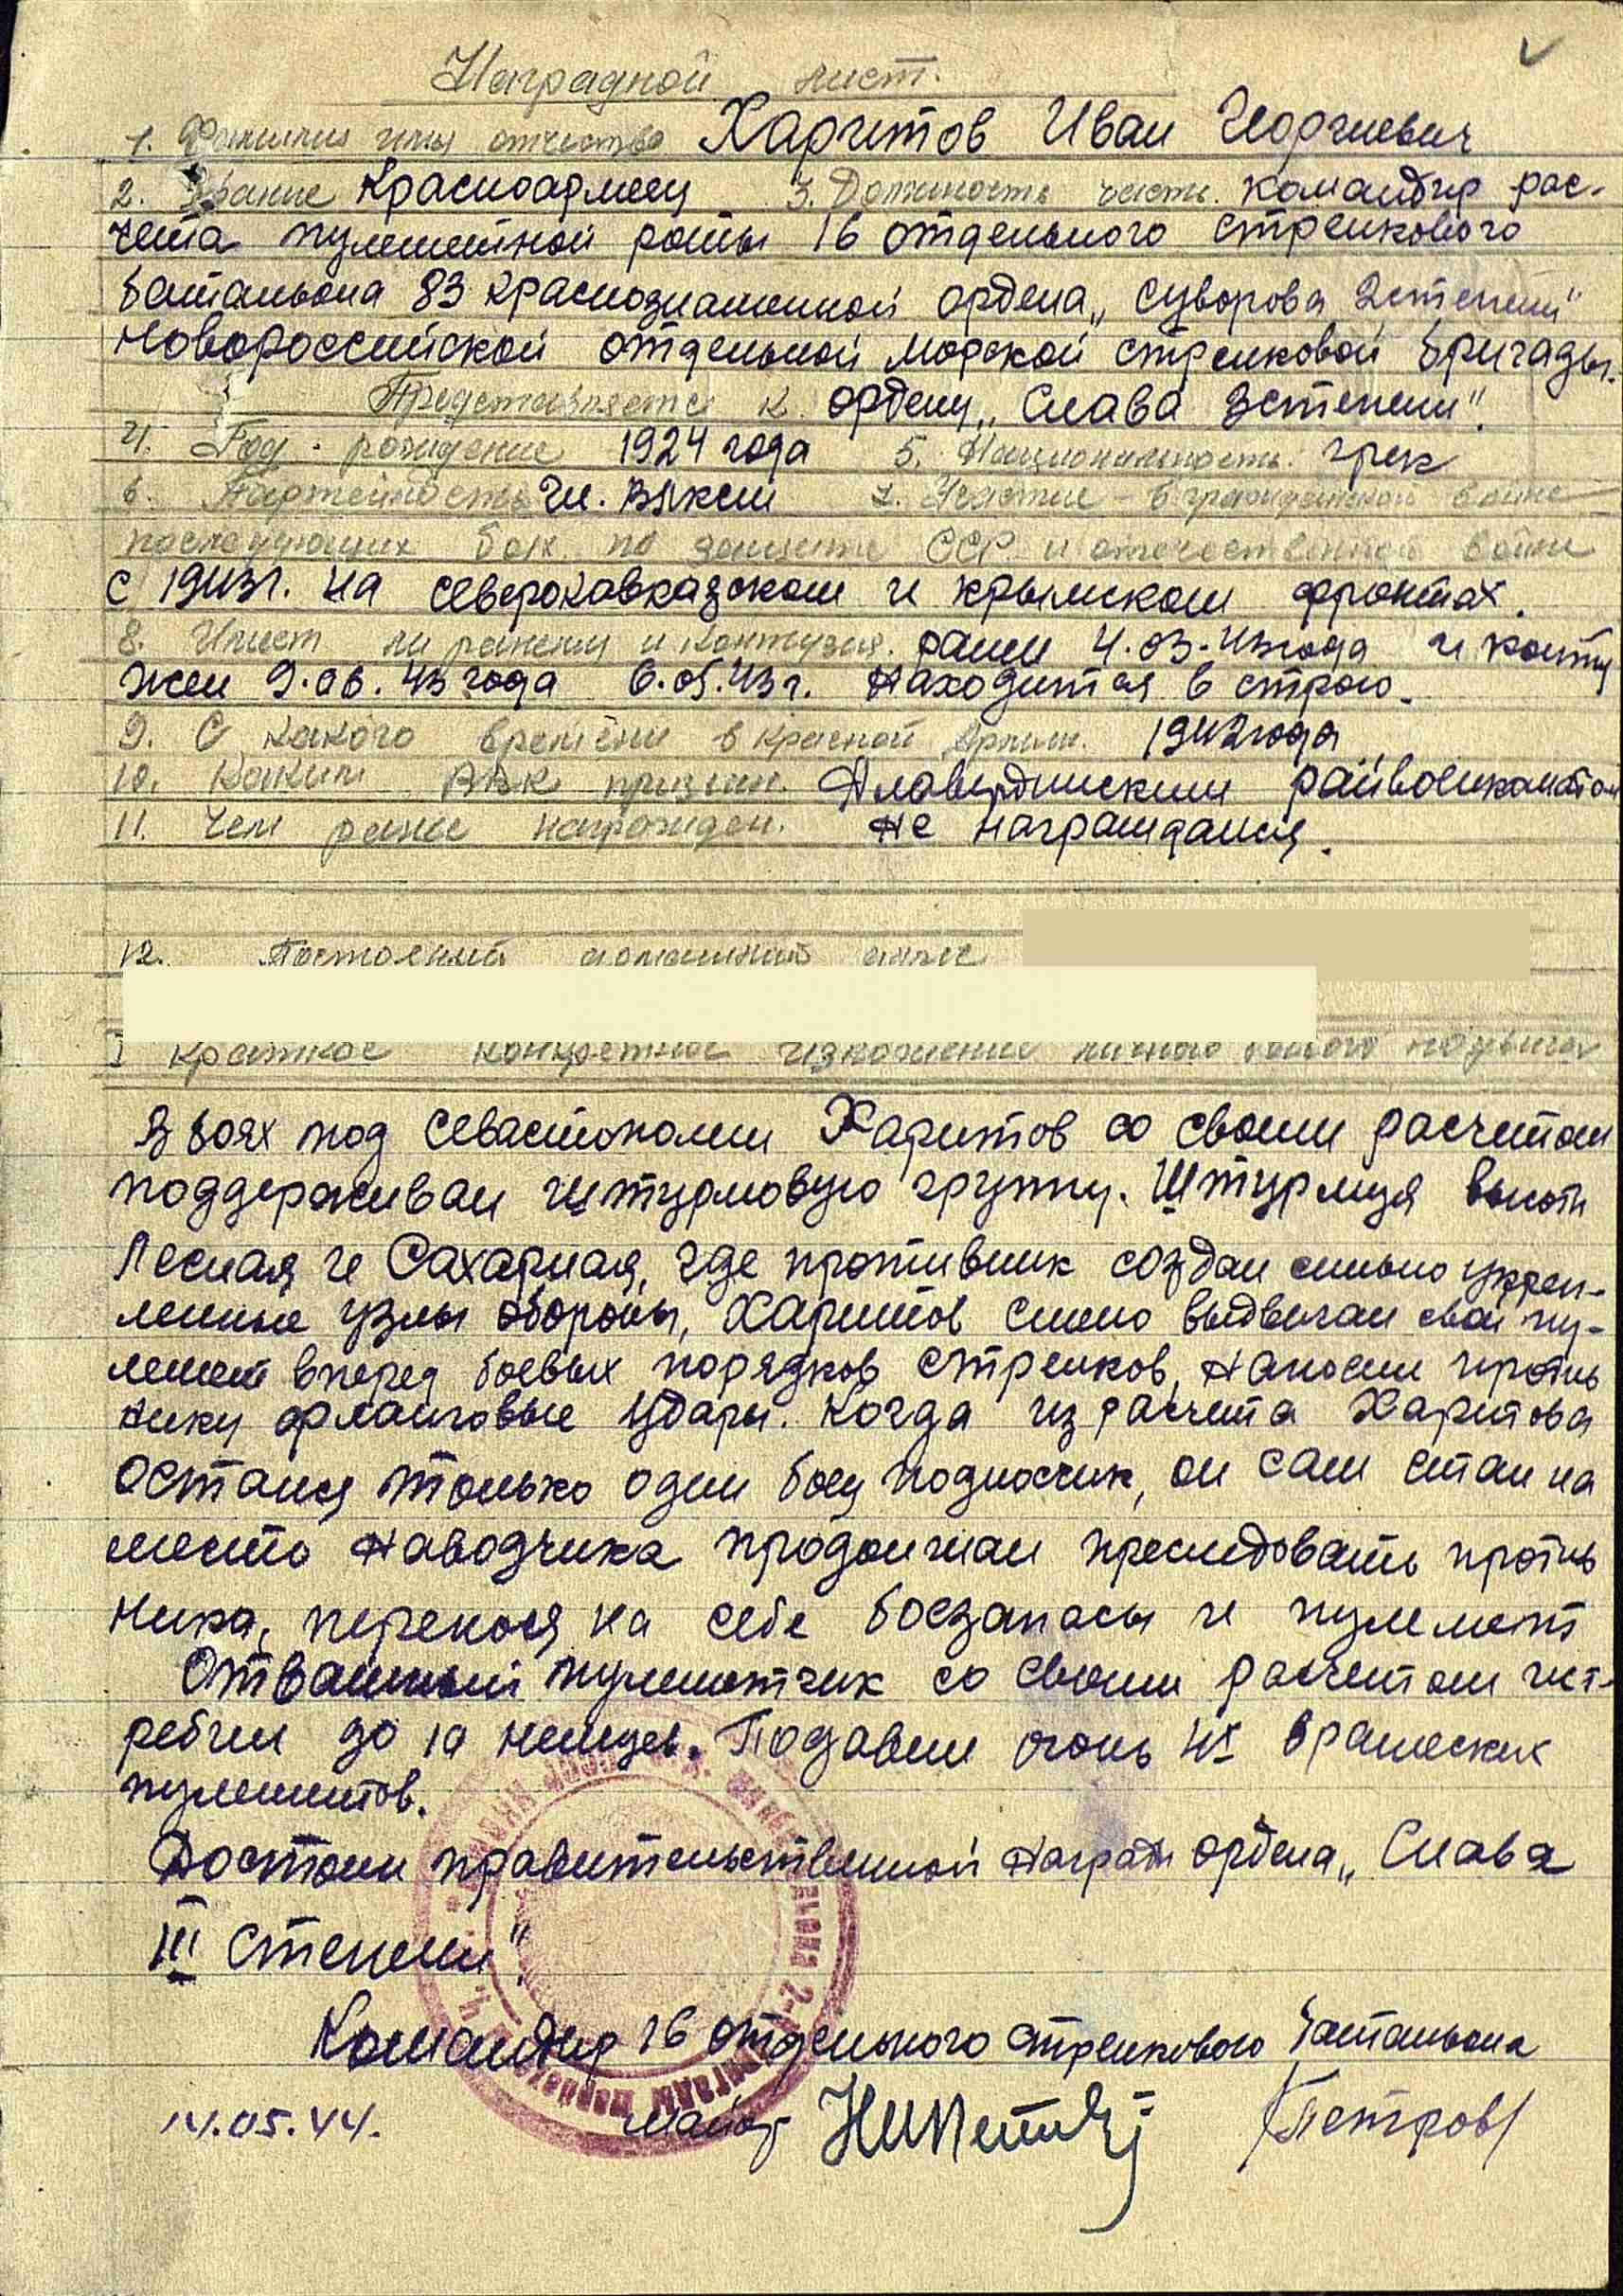 Наградной лист.
1. Фамилия имя отчество Харитов Иван Георгиевич
2. Звание Красноармеец 3. Должность часть. командир рас-
чета пулеметной роты 16 отдельного стрелкового
батальона 83 краснознаменной ордена „Суворова 2 степени"
Новороссийской отдельной морской стрелковой бригады.
Представляется к ордену „Слава 3 степени".
4. Год рождение 1924 года 5. Национальность. грек
6. Партейность Чл. ВЛКСМ 7. Участие в гражданской войне
последующих боях по защите СССР и отечественной войне
с 1943 г. на северокавказском и крымском фронтах.
8. Имеет ли ранения и контузия. ранен 4.03.43 года и конту
жен 9.06.43 года 6.05.43 г. Находится в строю.
9. С какого времени в красной Армии. 1942 года
10. Каким РВК призван. Алавердинским райвоенкоматом
11. Чем ранее награжден. Не награждался.
12. Постояный домашний адрес
I Краткое конкретное изложение личного боевого подвига
В боях под Севастополем Харитов со своим расчетом
поддерживал штурмовую группу. Штурмуя высоты
Лесная и Сахарная, где противник создал сильно укреп-
ленные узлы обороны, Харитов смело выдвигал свой пу-
лемет вперед боевых порядков стрелков, наносил против
нику фланговые удары. Когда из расчета Харитова
остался только один боец подносчик, он сам стал на
место наводчика продолжал преследовать против
ника, перенося на себе боезапасы и пулемет
Отважный пулеметчик со своим расчетом ист-
ребил до 10 немцев. Подавил огонь 4х вражеских
пулеметов.
Достоин правительственной награды ордена „Слава
III степени".
Командир 16 отдельного стрелкового батальона
14.05.44. майор /Петров/